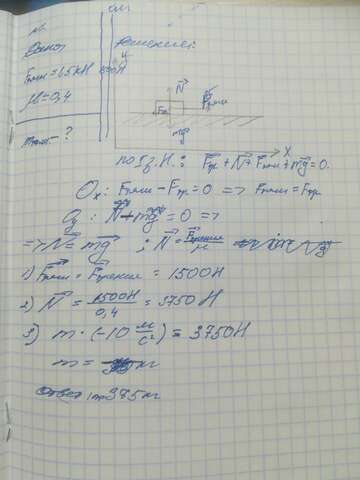 №
Дано:
Fтяги = 1,5 кН
μ = 0,4
m - ?
СИ
1500 Н
Решение:
y
N
Fтр
Fтяги
mg
X
по II з. Н.: Fтр. + N + Fтяги + mg = 0.
Ox: Fтяги - Fтр. = 0 => Fтяги = Fтр.
Oy: N + mg = 0 =>
=> N = mg ; N = Fтрения/μ
1) Fтяги = Fтрения = 1500 Н
2) N = 1500Н/0,4 = 3750 Н
3) m · (-10 м/с²) = 3750 Н
m = кг
Ответ: m 375 кг